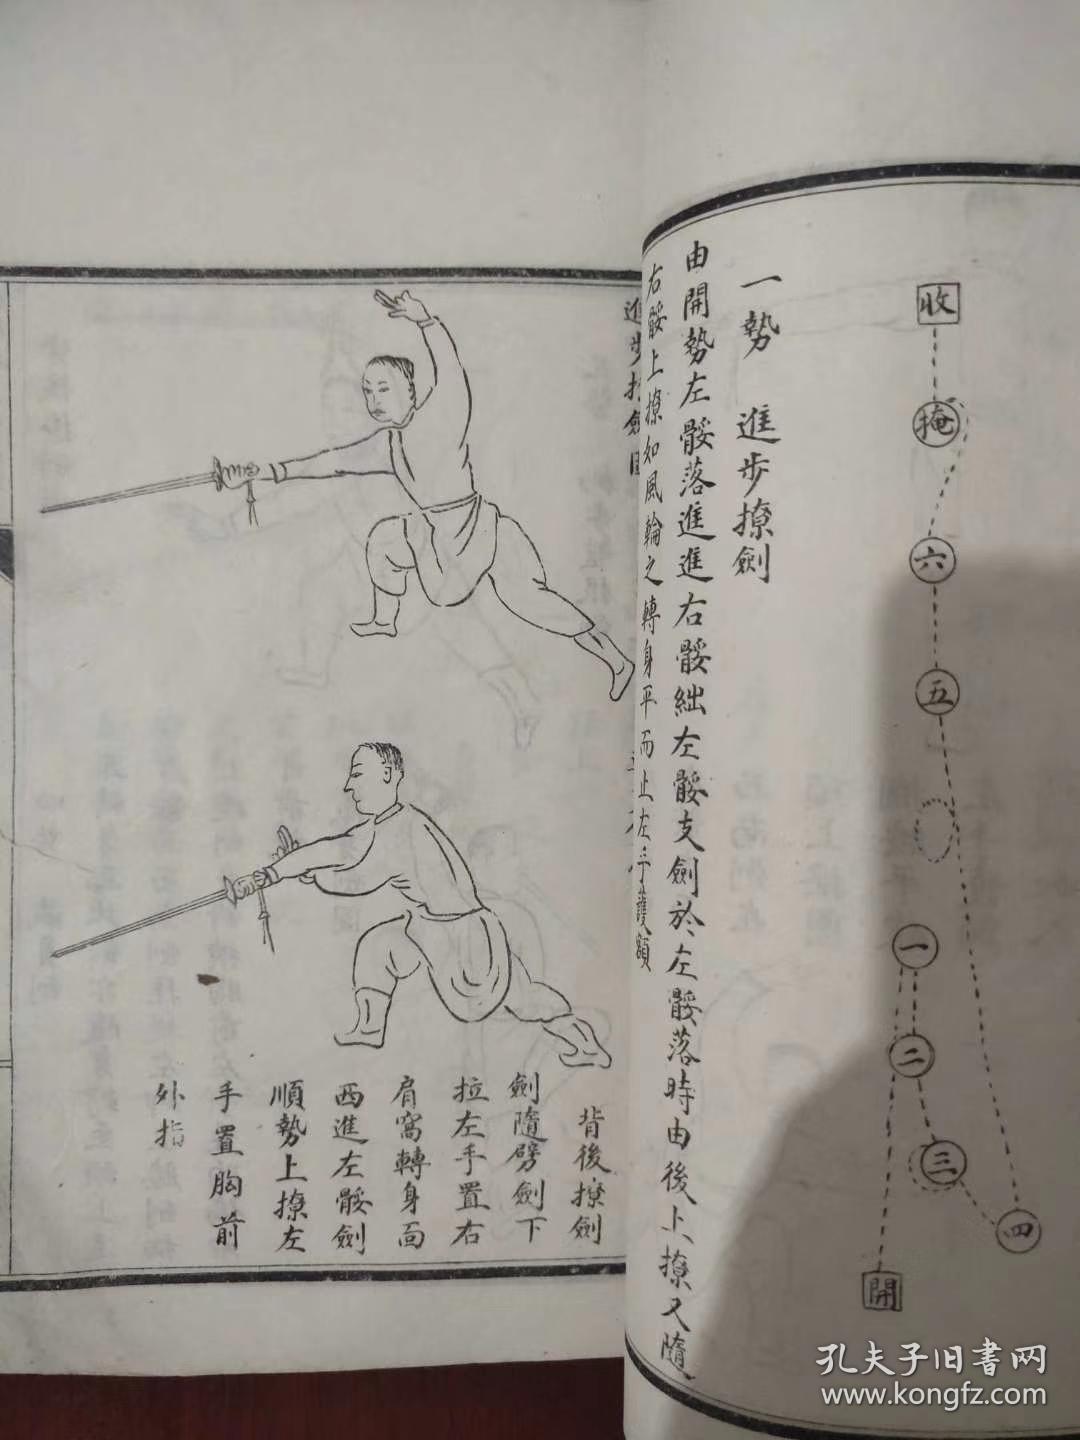 收
掩
六
五
一
二
三
四
開
一勢　進步撩劍
由開勢左骽落進進右骽絀左骽支劍於左骽落時由後上撩又隨
右骽上撩如風輪之轉身平而止左手護額
進步
背後撩劍
劍隨劈劍下
拉左手置右
肩窩轉身面
西進左骽劍
順勢上撩左
手置胸前
外指
孔夫子旧書网
www.kongfz.com